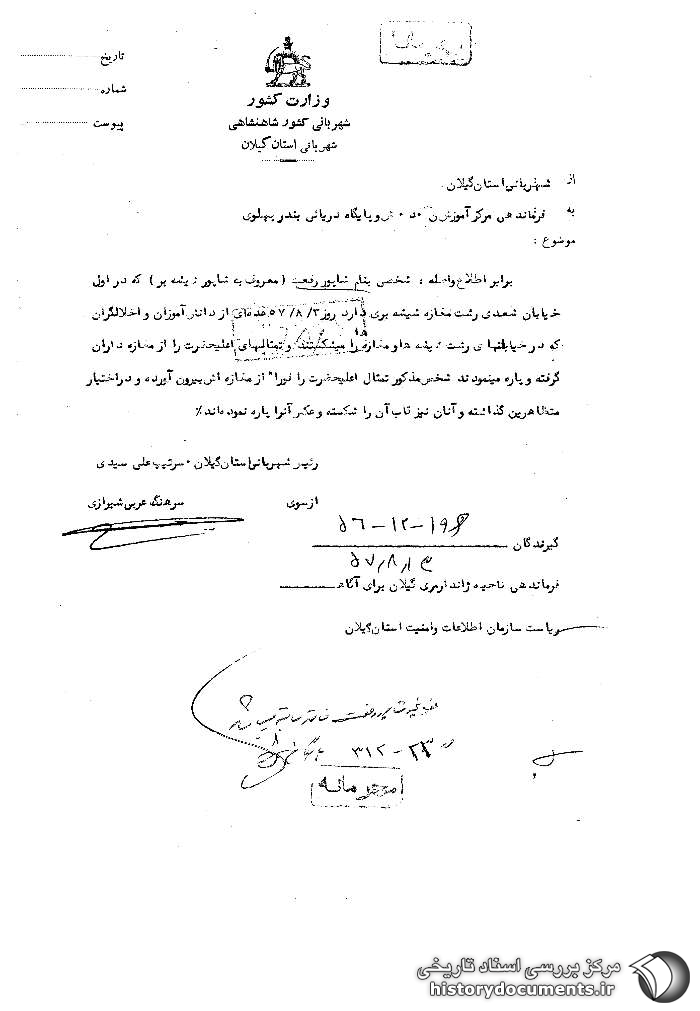 تاریخ
شماره
پیوست
وزارت کشور
شهربانی کشور شاهنشاهی
شهربانی استان گیلان
از شهربانی استان گیلان
به فرماندهی مرکز آموزش ن ۰ د ۰ ش و پایگاه دریائی بندر پهلوی
موضوع :
برابر اطلاع واصله ، شخصی بنام شاپور رفعت ( معروف به شاپور شیشه بر ) که در اول
خیابان سعدی رشت مغازه شیشه بری دارد روز ۵۷/۸/۳ عده‌ای از دانش آموزان و اخلالگران
که در خیابانهای رشت شیشه ها و مغازه ها را میشکستند و تمثالهای اعلیحضرت را از مغازه داران
گرفته و پاره مینمودند شخص مذکور تمثال اعلیحضرت را فورا" از مغازه اش بیرون آورده و در اختیار
متظاهرین گذاشته و آنان نیز تاب آن را شکسته و عکس آنرا پاره نموده‌اند ٪
رئیس شهربانی استان گیلان ۰ سرتیپ علی سیدی
از سوی سرهنگ عربی شیرازی
۵۶-۱۲-۱۹۶
گیرندگان
۵۷/۸/۱۳
فرماندهی ناحیه ژاندارمری گیلان برای آگاهی
ریاست سازمان اطلاعات و امنیت استان گیلان
۳۱۲-۲۳
محرمانه
مرکز بررسی اسناد تاریخی
historydocuments.ir